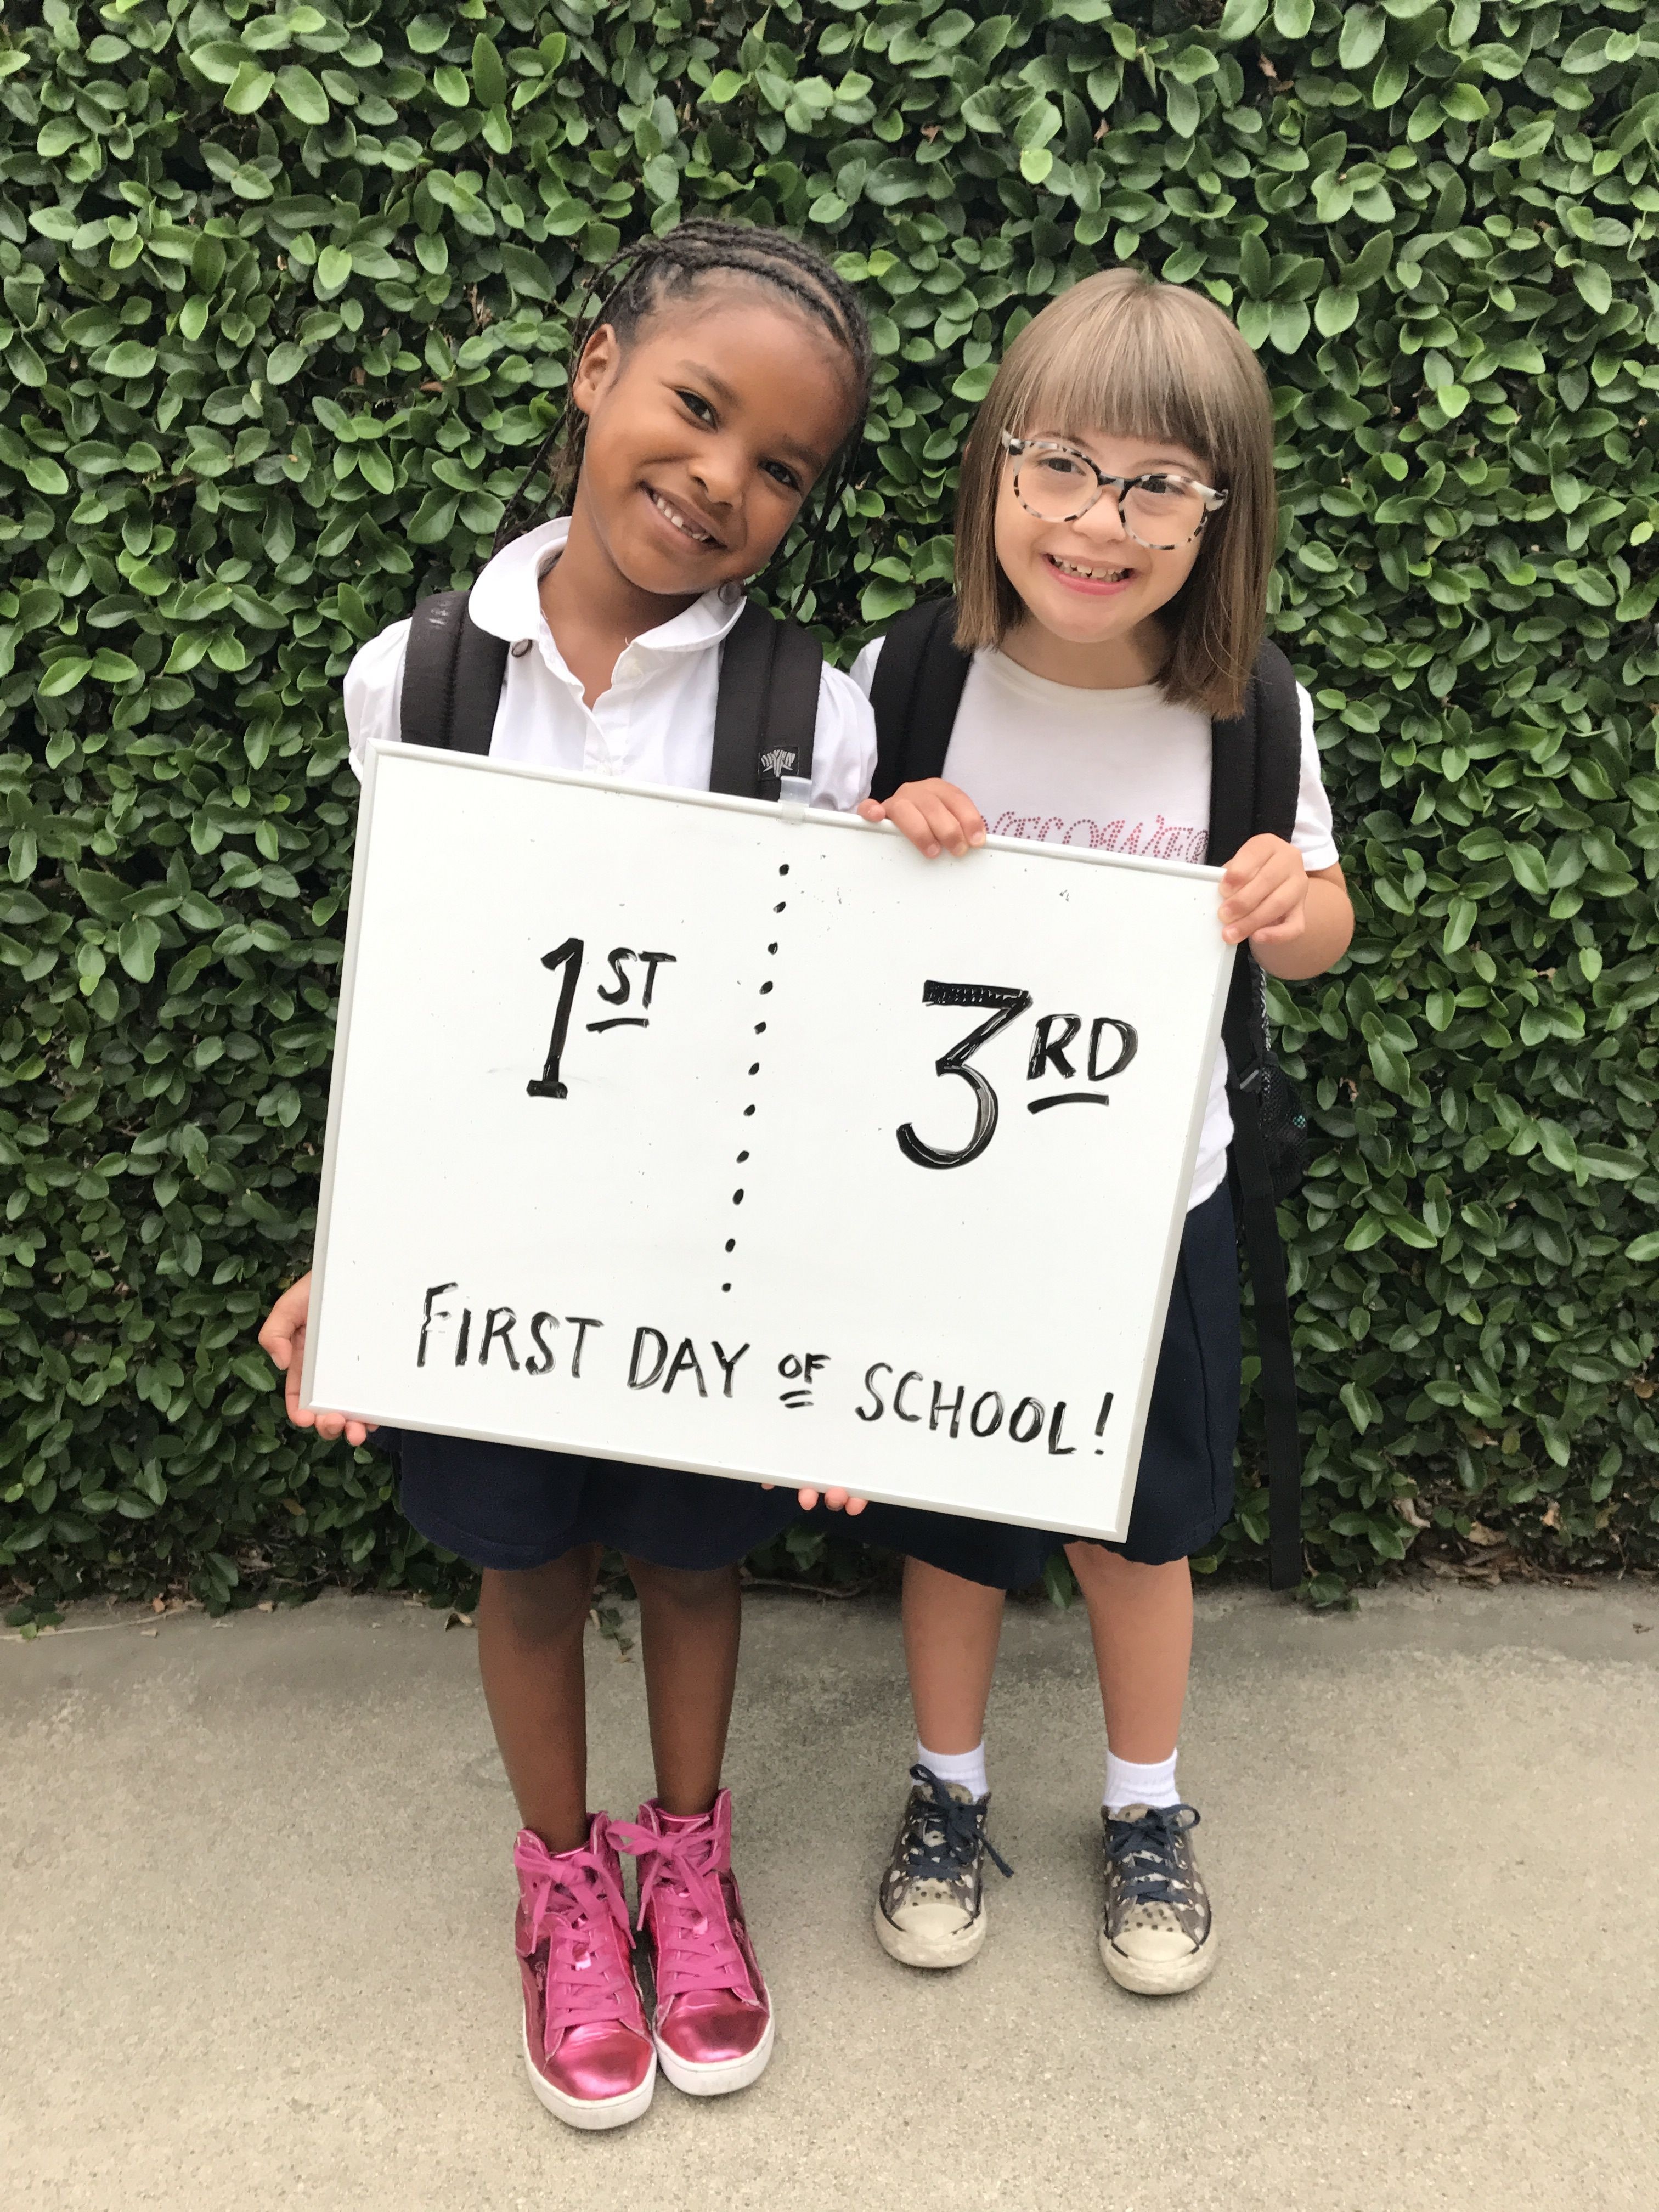 1ST
3RD
FIRST DAY OF SCHOOL!